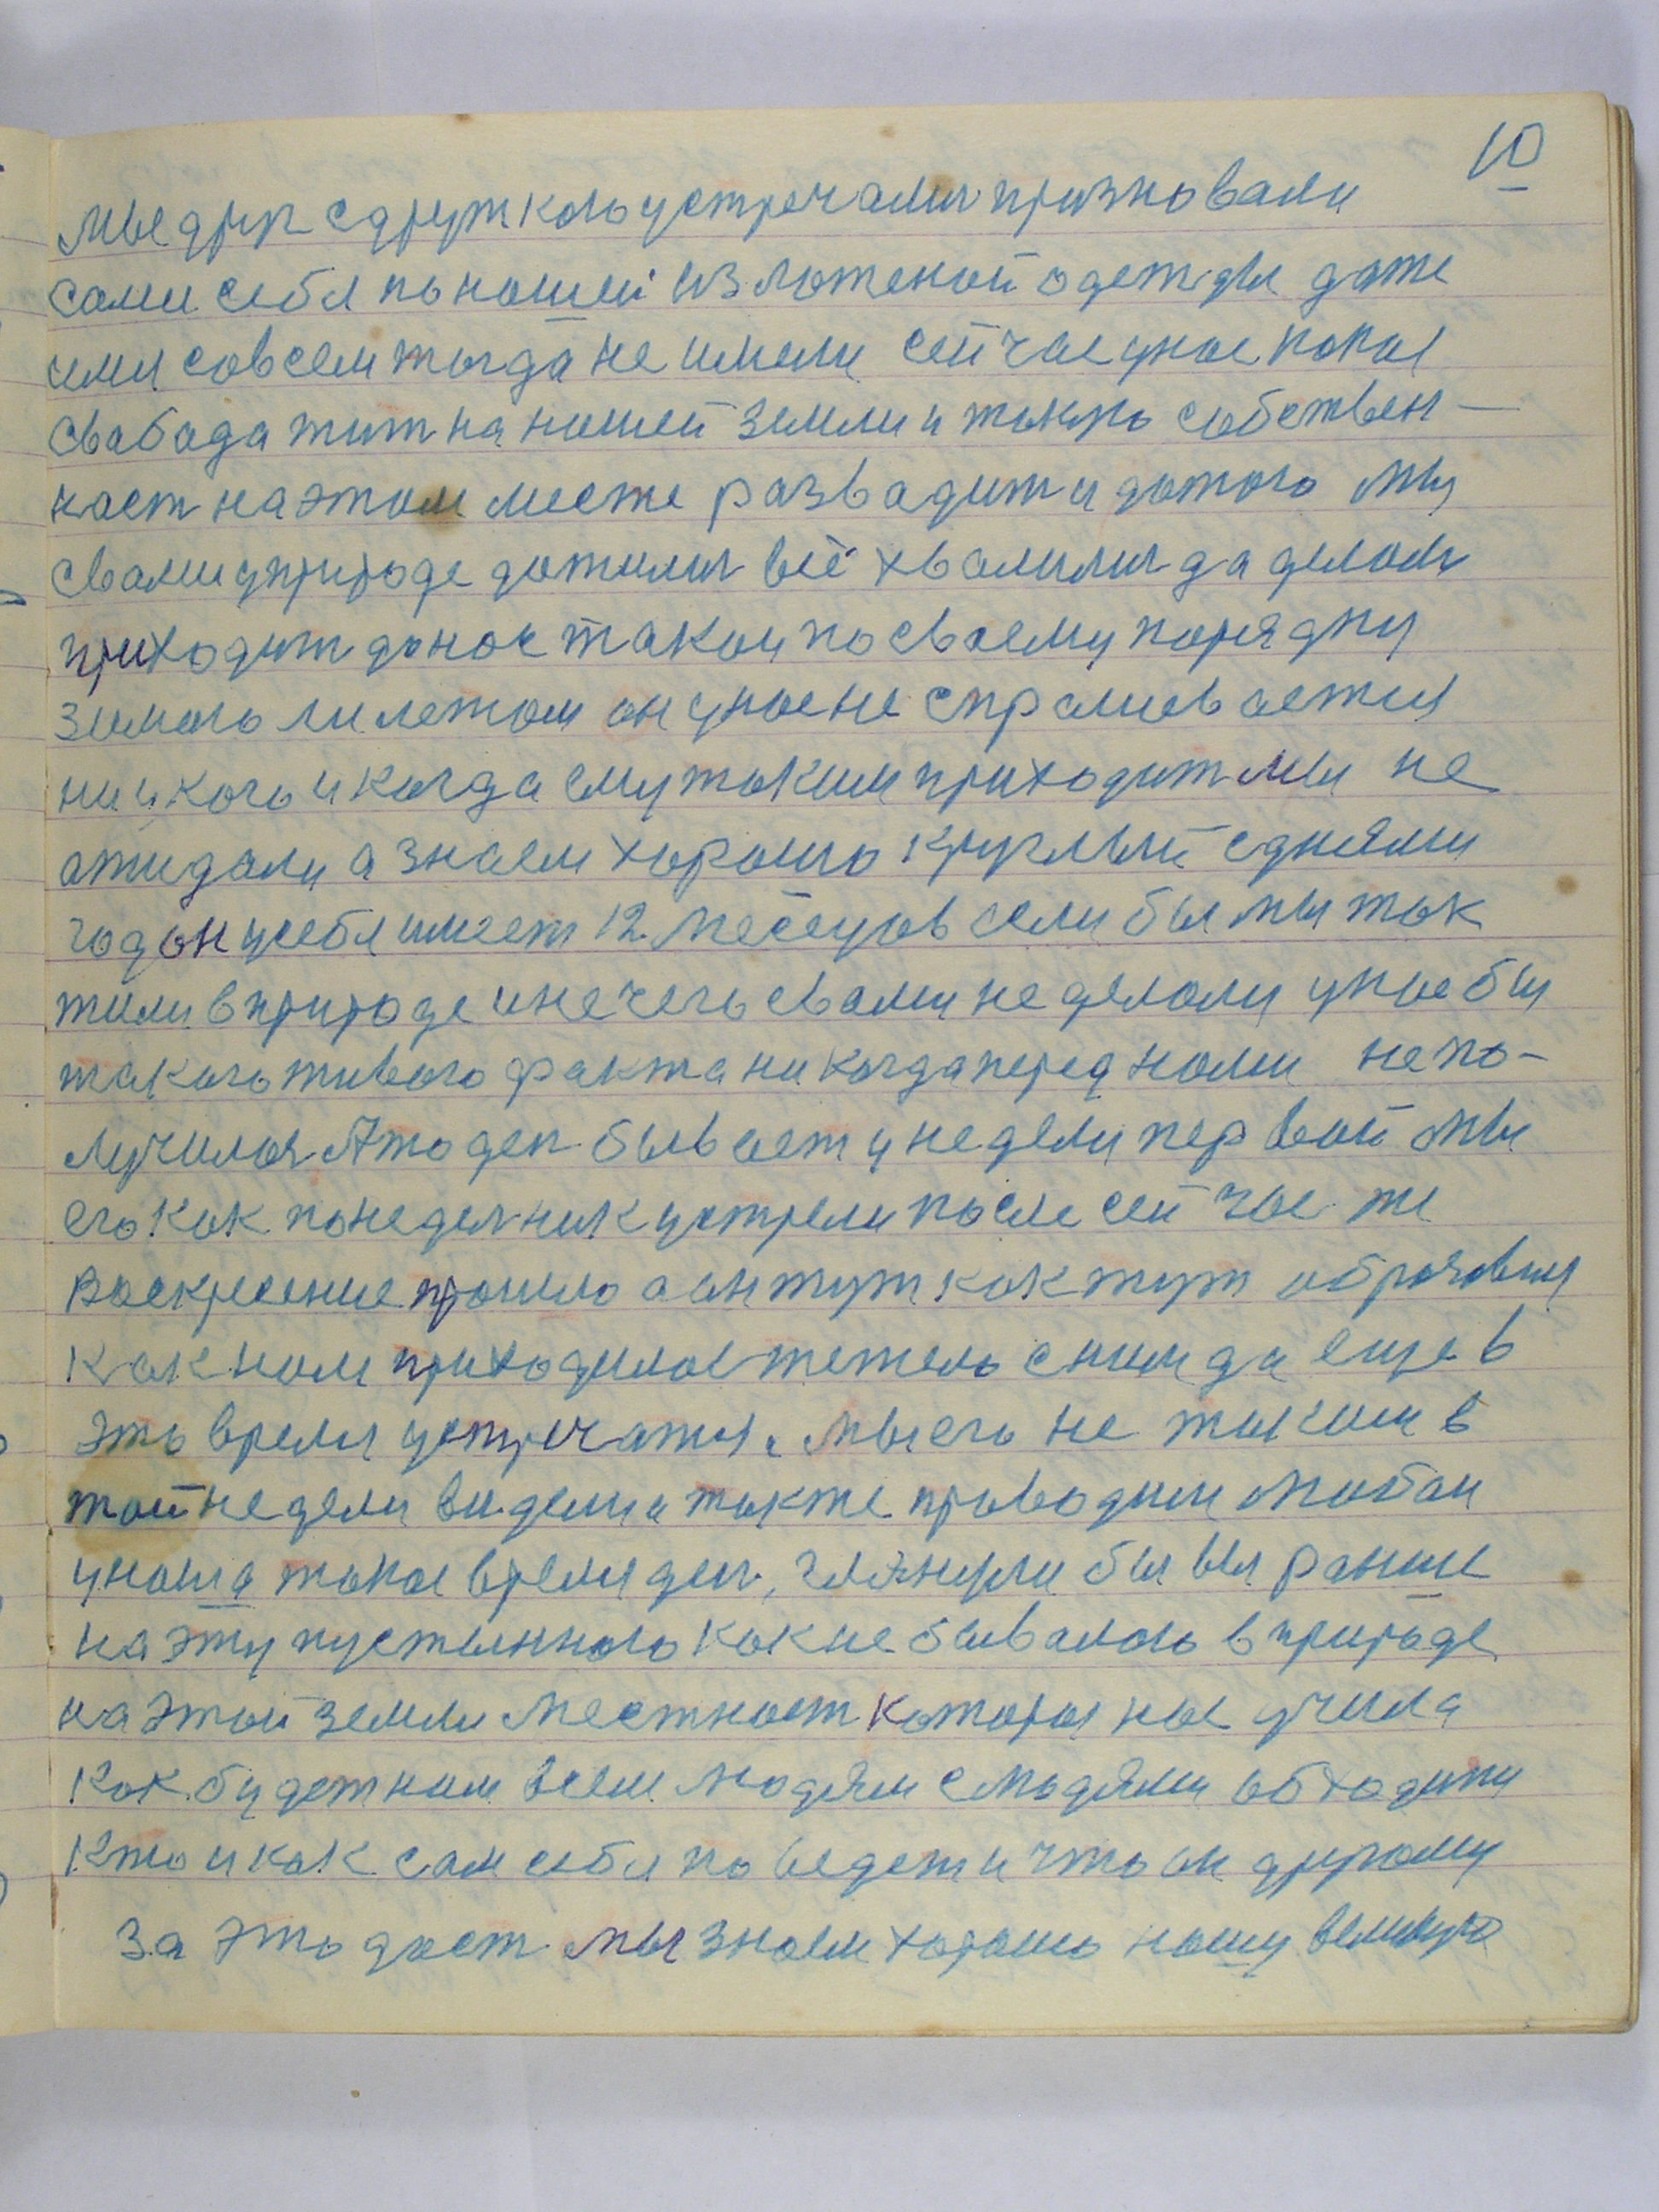 10
мые друг с дружкою устречалис призновали
сами себя по нашей изложеной одежды даже
имя совсем тогда не имели сейчас у нас какая
свабода жит на нашей земли и такую собствен-
ност на этом месте развадит и дотого мы
с вами у природе дожилис всё хвалилис да делали
приходит до нас такои по своему порядку
зимою ли летом он у нас не спрашевается
ни у кого и когда ему таким приходит мы не
ажидали а знаем хорошо круглый с днями
год он у себя имеет 12 месецов если бы мы так
жили в природе и нечего с вами не делали у нас бы
такого живого факта никогда перед нами не по-
лучилос А то ден бывает у недели первой мы
его как понеделник устрели после сейчас же
Васкресение прошло а он тут как тут
как нам приходилос тежело с ним да еще в
это время устречатся, мы его не таким в
той недели видели а также проводили любои
у нас а такое время ден, глянули бы вы раньше
на эту пустынною как не бывалою в природе
на этой земли местност которая нас учила
как будет нам всем людям с людями обходится
кто и как сам себя поведет и что он другому
за это даст мы знаем хорошо нашу великую